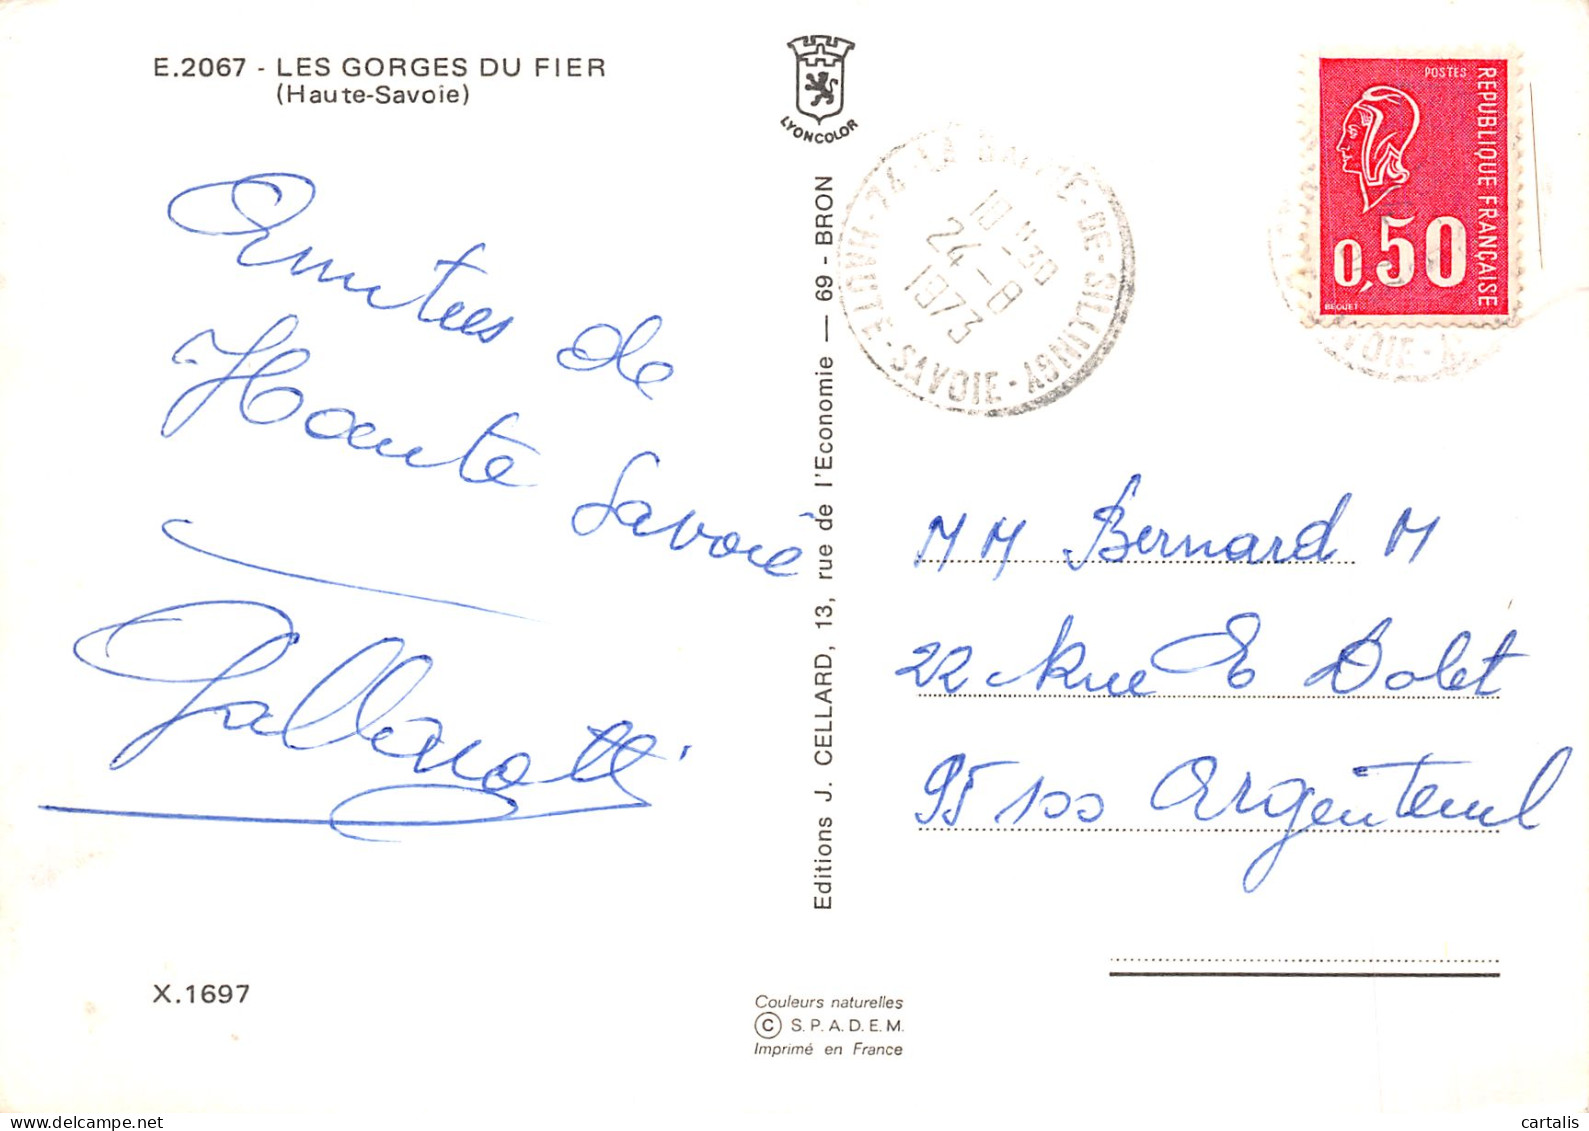 E.2067 - LES GORGES DU FIER
(Haute-Savoie)
Amitées de
Haute Savoie
Gallanotti
X.1697
LYONCOLOR
Editions J. CELLARD, 13, rue de l'Economie — 69 - BRON
Couleurs naturelles
© S.P.A.D.E.M.
Imprimé en France
74 - LA BALME-DE-SILLINGY
HAUTE-SAVOIE
18H30
24-8
1973
POSTES
REPUBLIQUE FRANÇAISE
0,50
BEQUET
MM Bernard M
22 Rue E Dolet
95100 Argenteuil
cartalis